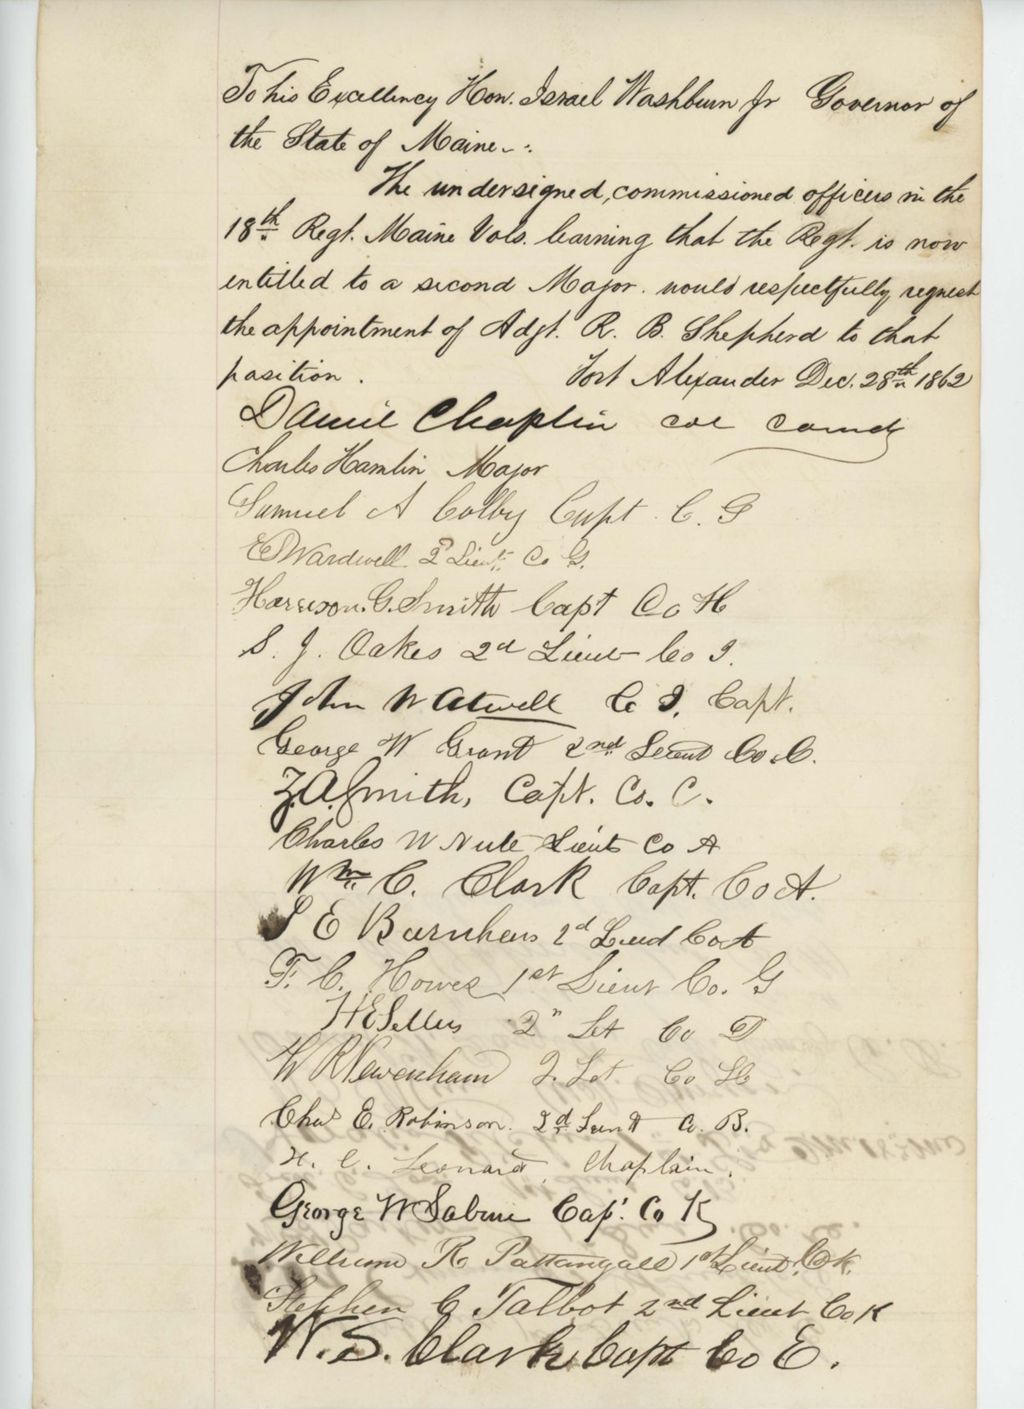 To his Excellency Hon. Israel Washburn Jr Governor of
the State of Maine.:
The undersigned, commissioned officers in the
18th Regt. Maine Vols. learning that the Regt. is now
entitled to a second Major. would respectfully request
the appointment of Adjt. R. B. Shepherd to that
position. Fort Alexander Dec. 28th 1862
Daniel Chaplin Col Comdg
Charles Hamlin Major
Samuel A Colby Capt. C. G
E S Wardwell 2d Lieut. Co G.
Harrison. G. Smith Capt Co H
S. J. Oakes 2d Lieut Co I.
John W Atwell Co I. Capt.
George W Grant 2nd Lieut Co. C.
Z. A. Smith, Capt. Co. C.
Charles W Nute Lieut Co A
Wm. C. Clark Capt. Co A.
S E Burnham 2d Lieut Co A
F. C. Howes 1st Lieut Co. G
H E Sellers 2" Lt Co D
W R Newenham 2. Lt. Co H
Chas E. Robinson. 2d Lieut Co. B.
H. C. Leonard, Chaplain.
George W Sabine Capt. Co K
William R. Pattangall 1st Lieut. Co K.
Stephen C Talbot 2nd Lieut Co K
W. S. Clark Capt Co E.